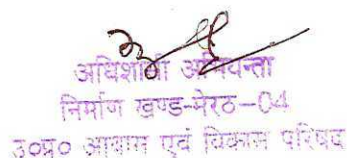 अधिशासी अभियन्ता
निर्माण खण्ड-मेरठ-04
उ०प्र० आवास एवं विकास परिषद